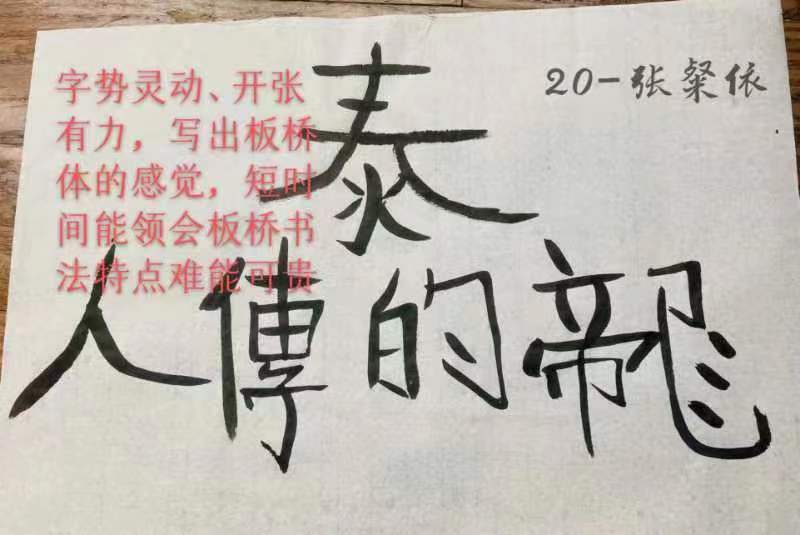 泰
20-张粲依
字势灵动、开张
有力，写出板桥
体的感觉，短时
间能领会板桥书
法特点难能可贵
人傳的龍